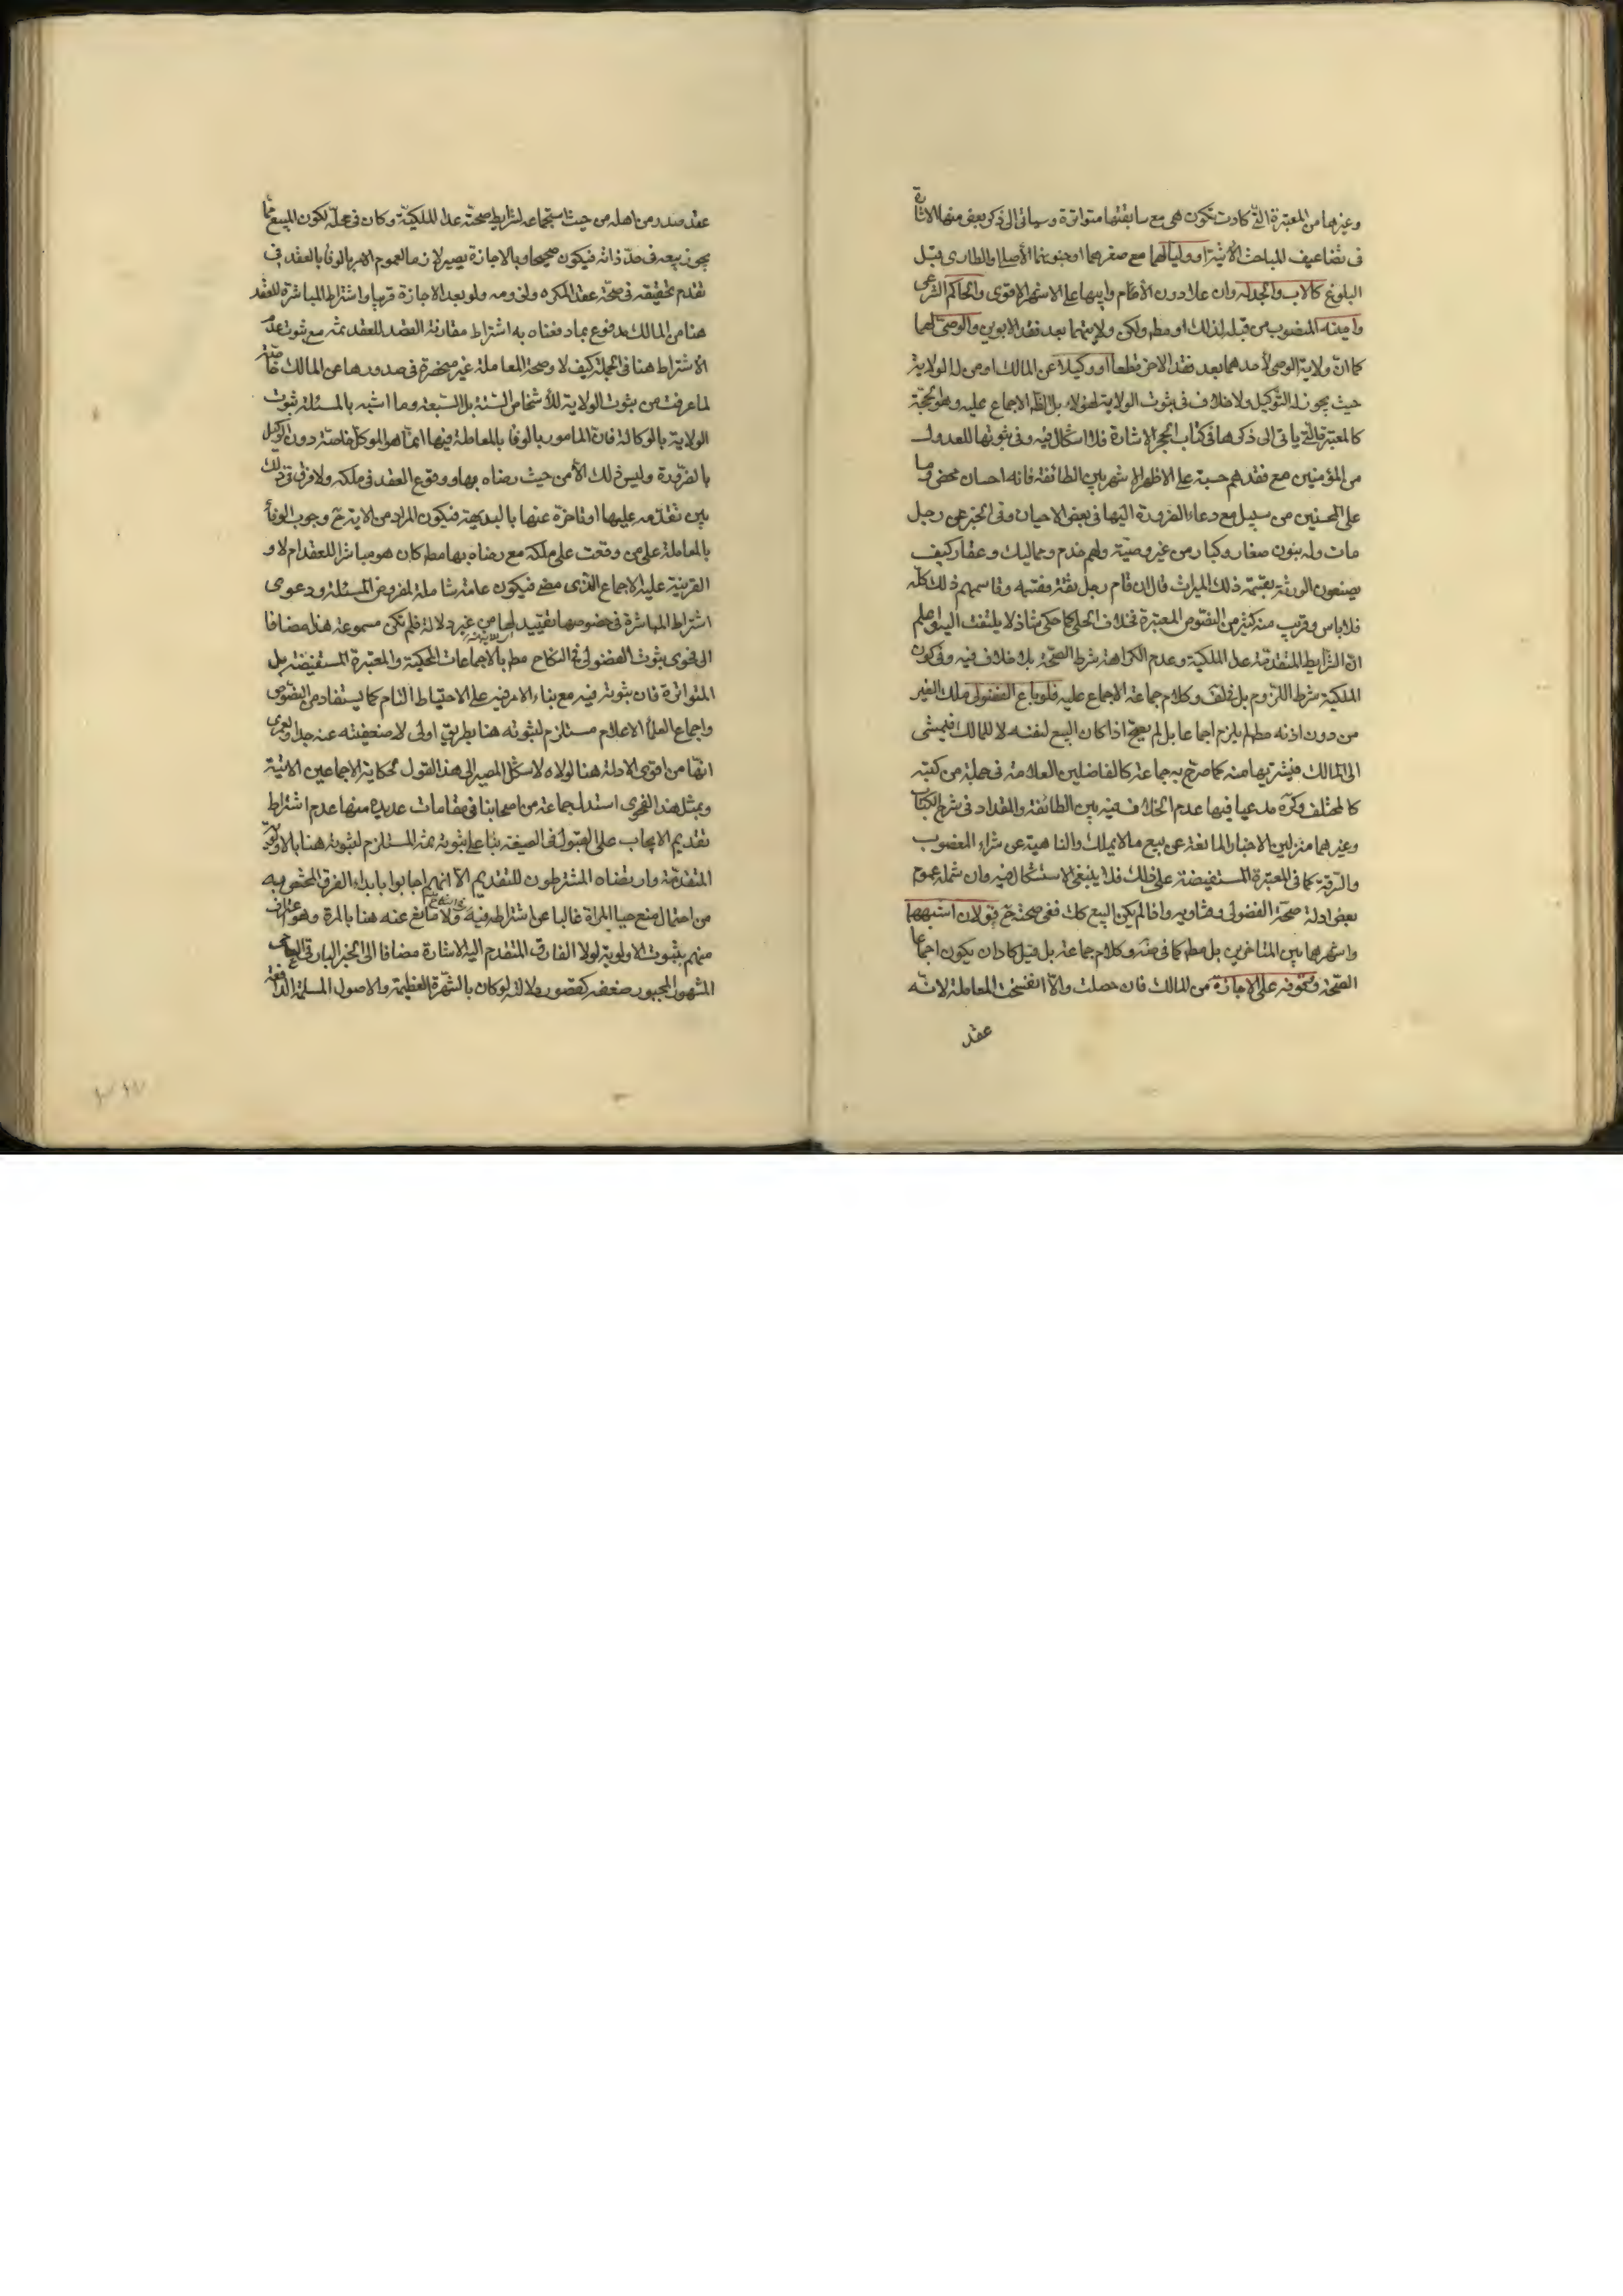 وغيرهما من المعتبرة التي كادت تكون هي مع سابقتها متواترة وسيأتي الى ذكر بعض منها الاشارة
في تضاعيف المباحث الآتية او وليا لهما مع صغرهما او جنونهما الأصلي او الطاري قبل
البلوغ كالاب والجد له وان علا دون الأم وابيها على الاشهر الاقوى والحاكم الشرعي
وامينه المنصوب من قبله لذلك او مطم ولكن ولايتهما بعد فقد الابوين والوصي لهما
كما ان ولاية الوصي لأحدهما بعد فقد الاخر قطعا او وكيلا عن المالك او من له الولاية
حيث يجوز له التوكيل ولا خلاف في ثبوت الولاية لهؤلاء بل الظ الاجماع عليه وهو الحجة
كالمعتبرة التي ياتي الى ذكرها في كتاب الحجر الاشارة فلا اشكال فيه وفي ثبوتها للعدول
من المؤمنين مع فقدهم حسبة على الاظهر الاشهر بين الطائفة فانه احسان محض وما
على المحسنين من سبيل مع دعاء الضرورة اليها في بعض الاحيان وفي الخبر عن رجل
مات وله بنون صغار وكبار من غير وصية ولهم خدم ومماليك وعقار كيف
يصنعون الورثة بقسمة ذلك الميراث قال ان قام رجل ثقة فقسمه وقاسمهم ذلك كله
فلا باس وقريب منه كثير من النصوص المعتبرة فخلاف الحلي كما حكى شاذ لا يلتفت اليه واعلم
ان الشرايط المتقدمة عدا الملكية وعدم الكراهة شرط الصحة بلا خلاف فيه وفي كون
الملكية شرط اللزوم بل خلف وكلام جماعة الاجماع عليه فلو باع الفضولي ملك الغير
من دون اذنه مطم لم يلزم اجماعا بل لم يصح اذا كان البيع لنفسه لا للمالك فيمشي
الى المالك فيشتريها منه كما صرح به جماعة كالفاضلين العلامة في جملة من كتبه
كالمختلف وكره مدعيا فيها عدم الخلاف فيه بين الطائفة والمقداد في شرح الكتاب
وغيرهما منزلين الاخبار المانعة عن بيع ما لا يملك والناهية عن شراء المغصوب
والسرقة كما في المعتبرة المستفيضة على ذلك فلا ينبغي الاستشكال فيه وان شمله عموم
بعض ادلة صحة الفضولي وفتاويه واذا لم يكن البيع كك ففي صحته ح قولان اشبههما
واشهرهما بين المتاخرين بل مطم كما في ضه وكلام جماعة بل قيل كاد ان يكون اجماعا
الصحة وتوقفه على الاجازة من المالك فان حصلت والا انفسخت المعاملة لانه
عقد
عقد صدر من اهله من حيث استجماعه لشرايط صحته عدا الملكية وكان في محله لكون المبيع مما
يجوز بيعه في حد ذاته فيكون صحيحا وبالاجازة يصير لازما لعموم الامر بالوفا بالعقد في
تقدم تحقيقه في صحة عقد المكره ولزومه ولو بعد الاجازة قريبا واشتراط المباشرة للعقد
هنا من المالك مدفوع بما دفعناه به اشتراط مقارنة القصد للعقد ثمه مع ثبوت عدم
الاشتراط هنا في الجملة كيف لا وصحة المعاملة غير منحصرة في صدورها عن المالك خاصة
لما عرفت من ثبوت الولاية للأشخاص الستة بل السبعة وما اشبه بالمسئلة ثبوت
الولاية بالوكالة فان المامور بالوفا بالمعاملة فيها انما هو الموكل خاصة دون الوكيل
بالضرورة وليس ذلك الا من حيث رضاه بها ووقوع العقد في ملكه ولا فرق في ذلك
بين تقدمه عليها او تاخره عنها بالبديهة فيكون المراد من الاية ح وجوب الوفاء
بالمعاملة على من وقعت على ملكه مع رضاه بها مطم كان هو مباشرا للعقد ام لا و
القرينة عليه الاجماع الذي مضى فيكون عامة شاملة لمفروض المسئلة ودعوى
اشتراط المباشرة في خصوصها تقييد لها من غير دلالة فلم تكن مسموعة هذا مضافا
الى فحوى ثبوت الفضولي في النكاح مطم بالاجماعات المحكية والمعتبرة المستفيضة بل
المتواترة فان ثبوته فيه مع بناء الامر فيه على الاحتياط التام كما يستفاد من النصوص
واجماع العلماء الاعلام مستلزم لثبوته هنا بطريق اولى لاضعفيته عنه جدا ولعمري
انها من اقوى الادلة هنا لولاه لاشكل المصير الى هذا القول لحكاية الاجماعين الاتية
وبمثل هذا الفحوى استدل جماعة من اصحابنا في مقامات عديدة منها عدم اشتراط
تقديم الايجاب على القبول في الصيغة بناء على ثبوته ثمه المستلزم لثبوته هنا بالاولوية
المتقدمة وارتضاه المشترطون للتقديم الا انهم اجابوا بابداء الفرق المختص به
من احتمال منع حياء المراة غالبا عن اشتراطه فيه ولا مانع عنه هنا بالمرة وهو اعتراف
منهم بثبوت الاولوية لولا الفارق المتقدم اليه الاشارة مضافا الى الخبر البارقي العامي
المشهور المجبور ضعفه كقصور دلالته لو كان بالشهرة العظيمة والاصول المسلمة الدافعة